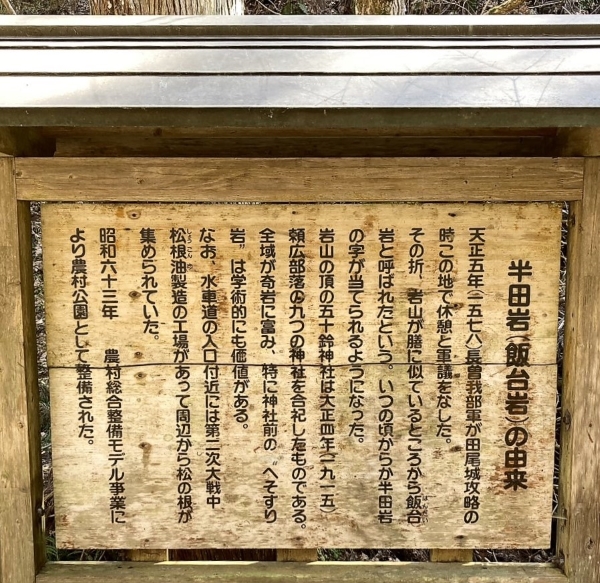 半田岩（飯台岩）の由来
天正五年（一五七八）長曽我部軍が田尾城攻略の
時この地で休憩と軍議をなした。
その折、岩山が膳に似ているところから飯台
はんだい
岩と呼ばれたという。いつの頃からか半田岩
の字が当てられるようになった。
岩山の頂の五十鈴神社は大正四年（一九一五）
頼広部落の九つの神社を合祀したものである。
全域が奇岩に富み、特に神社前の〝へそすり
岩〟は学術的にも価値がある。
なお、水車道の入口付近には第二次大戦中
しょうこんゆ
松根油製造の工場があって周辺から松の根が
集められていた。
昭和六十三年　農村総合整備モデル事業に
より農村公園として整備された。